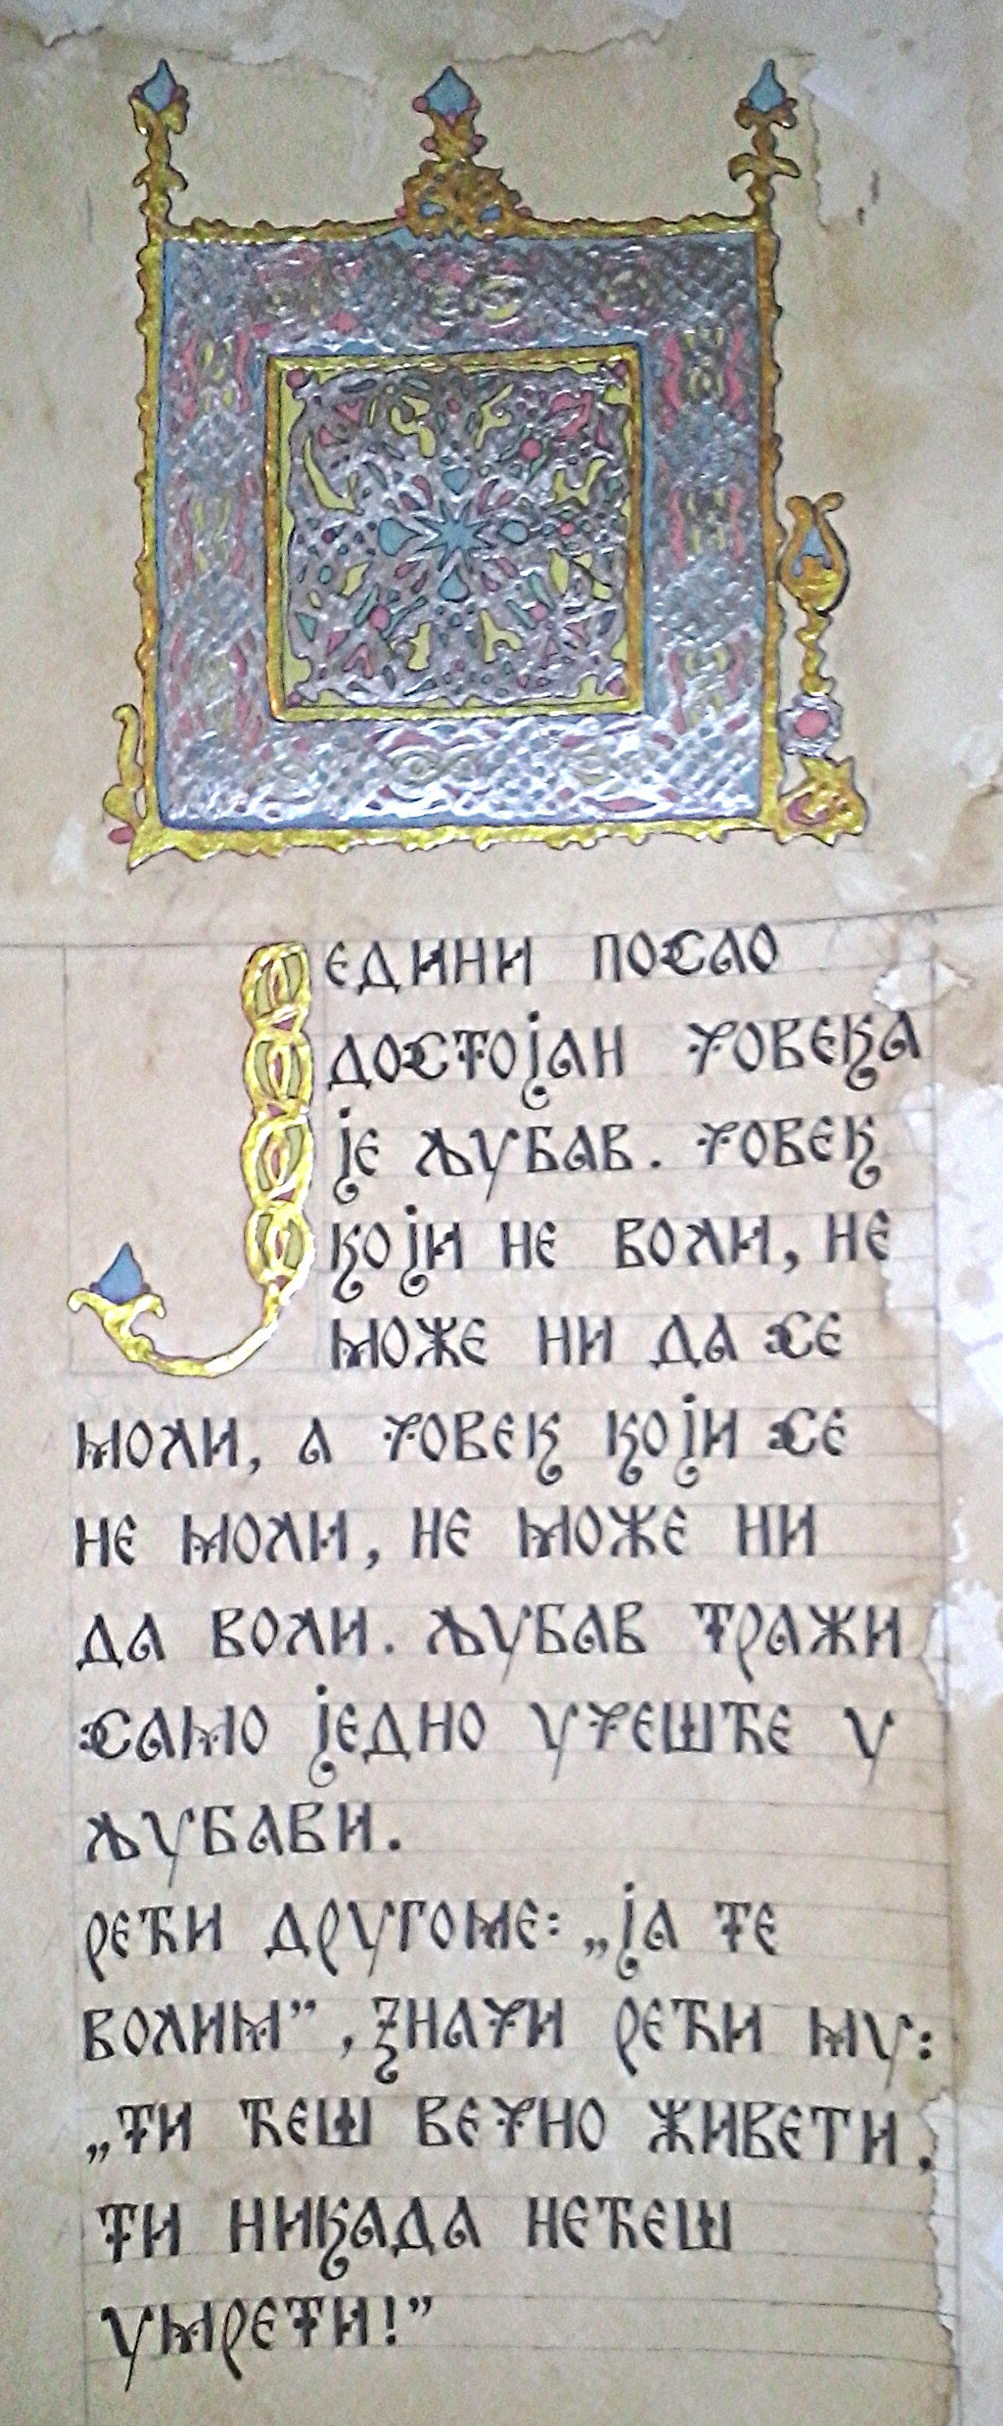 Једини посао
достојан човека
је љубав. Човек
који не воли, не
може ни да се
моли, а човек који се
не моли, не може ни
да воли. Љубав тражи
само једно учешће у
љубави.
Рећи другоме: „Ја те
волим”, значи рећи му:
„Ти ћеш вечно живети.
Ти никада нећеш
умрети!”